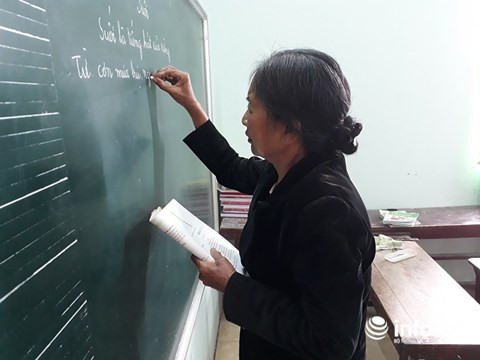 Suối
Suối là tiếng hát của rừng
Từ cơn mưa bụi
info